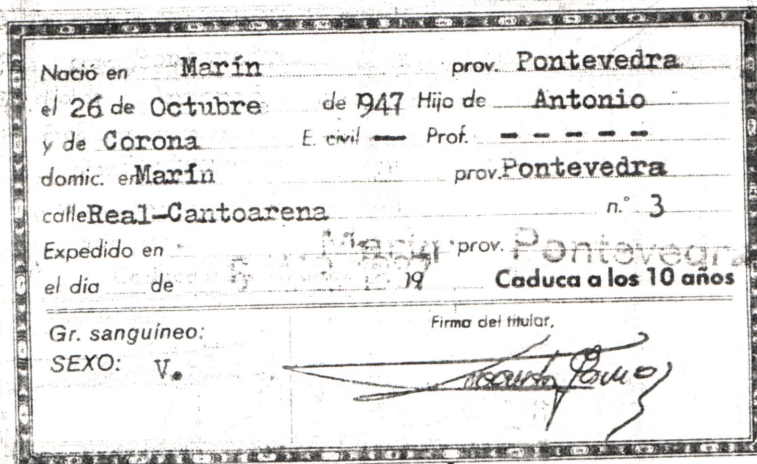 Nació en Marín prov. Pontevedra
el 26 de Octubre de 1947 Hijo de Antonio
y de Corona E. civil — Prof. - - - - -
domic. en Marín prov. Pontevedra
calle Real-Cantoarena n.° 3
Expedido en prov. Pontevedra
el día de 19 Caduca a los 10 años
Gr. sanguíneo:
Firma del titular,
SEXO: V.